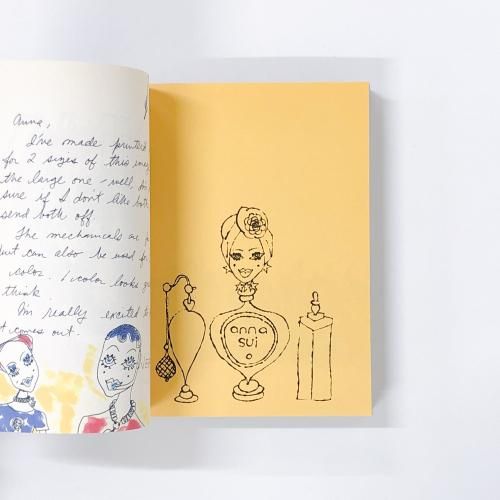 Anna,
I've made printed
for 2 sizes of this
the large one - well,
sure if I don't like both
send both off
The mechanicals are
but can also be used
color. 1 color looks
think.
I'm really excited to
it comes out.
anna
sui